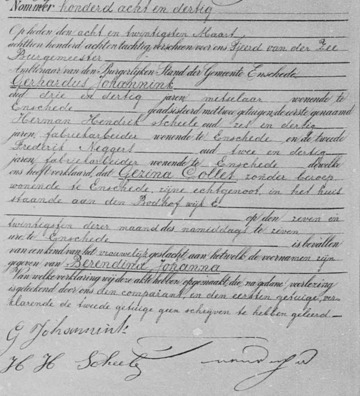 Nommer honderd acht en dertig
Op heden den acht en twintigsten Maart
achttien honderd acht en tachtig, verscheen voor ons Sjoerd van der Zee
Burgemeester
Ambtenaar van den Burgerlijken Stand der Gemeente Enschede
Gerhardus Johannink
oud drie en dertig jaren, metselaar wonende te
Enschede geadsisteerd met twee getuigen de eerste genaamd
Herman Hendrik Scheele oud zes en dertig
jaren, fabriekarbeider wonende te Enschede en de tweede
Fredrik Neggers oud twee en dertig
jaren, fabriekarbeider wonende te Enschede dewelke
ons heeft verklaard, dat Gerina Collet zonder beroep
wonende te Enschede, zijne echtgenoot, in het huis
staande aan den wijk E.
op den zeven en
twintigsten dezer maand des namiddags te zeven
ure, te Enschede is bevallen
van een kind van het vrouwelijk geslacht aan hetwelk de voornamen zijn
gegeven van Berendina Johanna
Van welke verklaring wij deze akte hebben opgemaakt, die na gedane voorlezing
is geteekend door ons, den comparant, en den eersten getuige, ver-
klarende de tweede getuige geen schrijven te hebben geleerd
G Johannink
H H Scheele